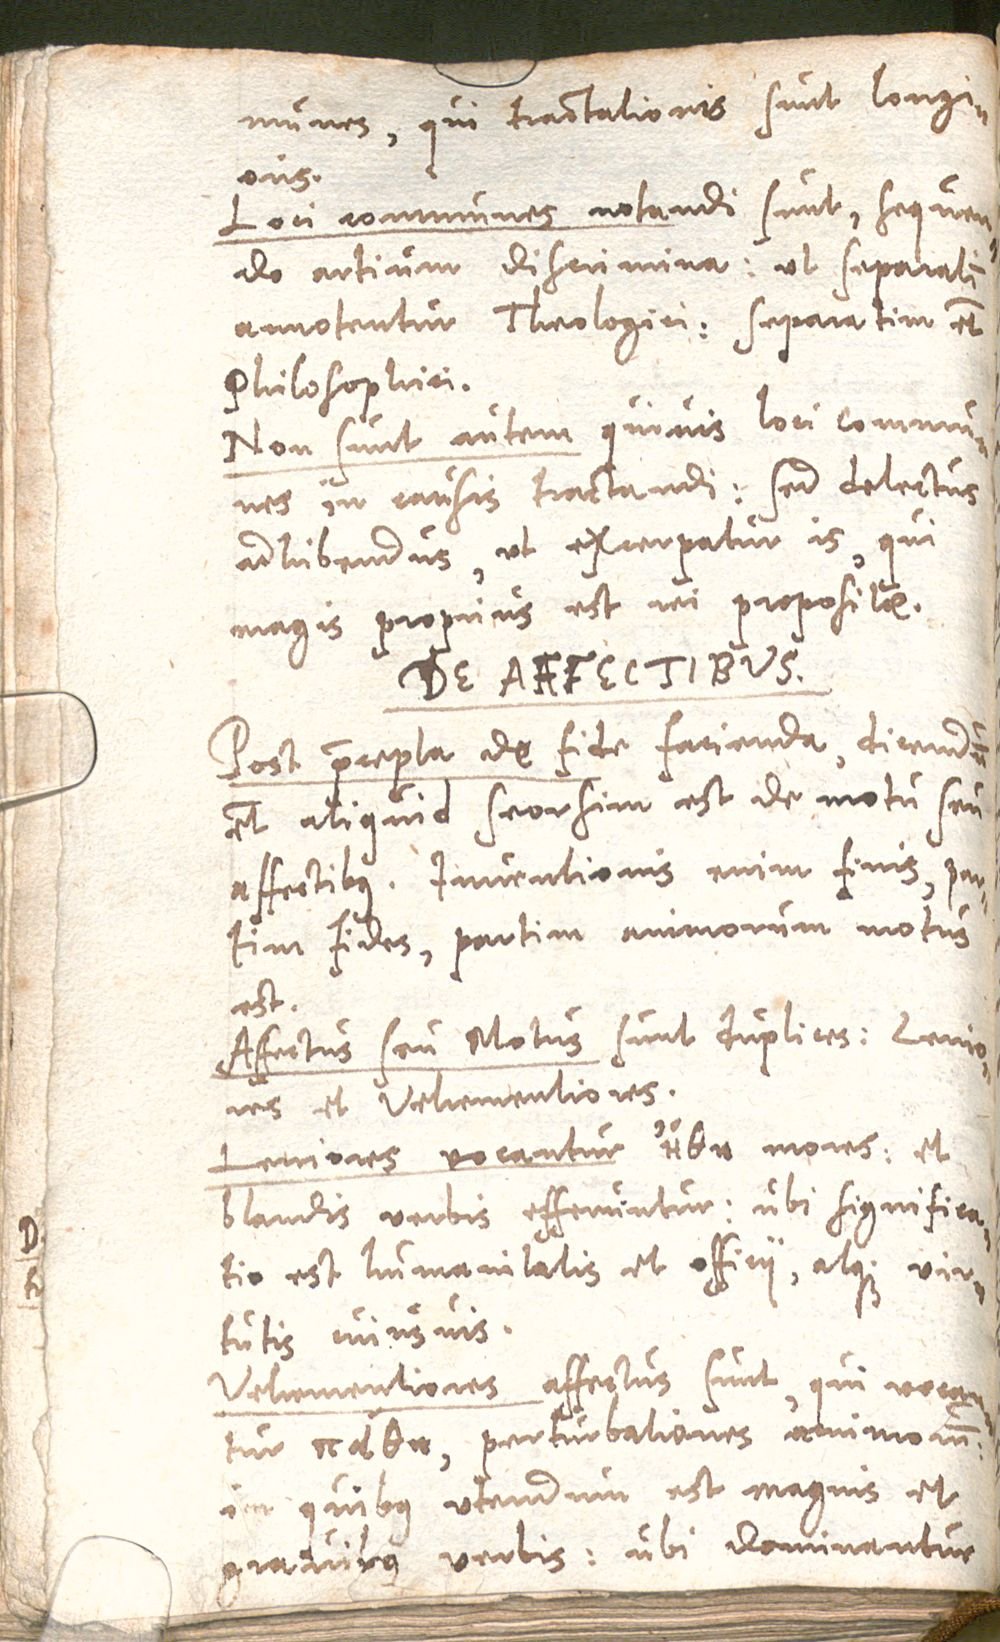 munes, qui tractationis sunt longi-
oris.
Loci communes notandi sunt, sequen-
do artium discrimina: ut separatī
annotentur Theologici: separatim et̄
Philosophici.
Non sunt autem quiuis loci commu-
nes in causis tractandi: sed delectus
adhibendus, vt excerpatur is, qui
magis proprius est rei propositæ.
DE AFFECTIBVS.
Post p̄cepta de fide facienda, dicendū
et̄ aliquid seorsim est de motu seu
affectibꝫ. Inuentionis enim finis, par-
tim fides, partim animorum motus
est.
Affectus seu Motus sunt duplices: Lenio-
res et Vehementiores.
Leniores vocantur ἤθη mores: et
blandis verbis efferuntur: ubi significa-
tio est humanitatis et officij, atqꝫ vir-
tutis cuiusuis.
Vehementiores affectus sunt, qui vocan-
tur πάθη, perturbationes animorū:
in quibꝫ vtendum est magnis et
grauibꝫ verbis: ubi dominantur
D.